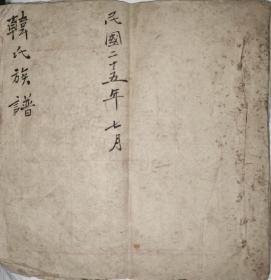 民國二十五年 七月
韓氏族譜